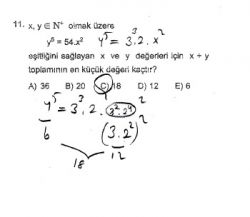 11. x, y ∈ N⁺ olmak üzere
y⁵ = 54.x² y⁵ = 3³.2.x²
eşitliğini sağlayan x ve y değerleri için x + y
toplamının en küçük değeri kaçtır?
A) 36 B) 20 C) 18 D) 12 E) 6
y⁵ = 3³.2.3².2⁴
6 (3.2²)²
12
18